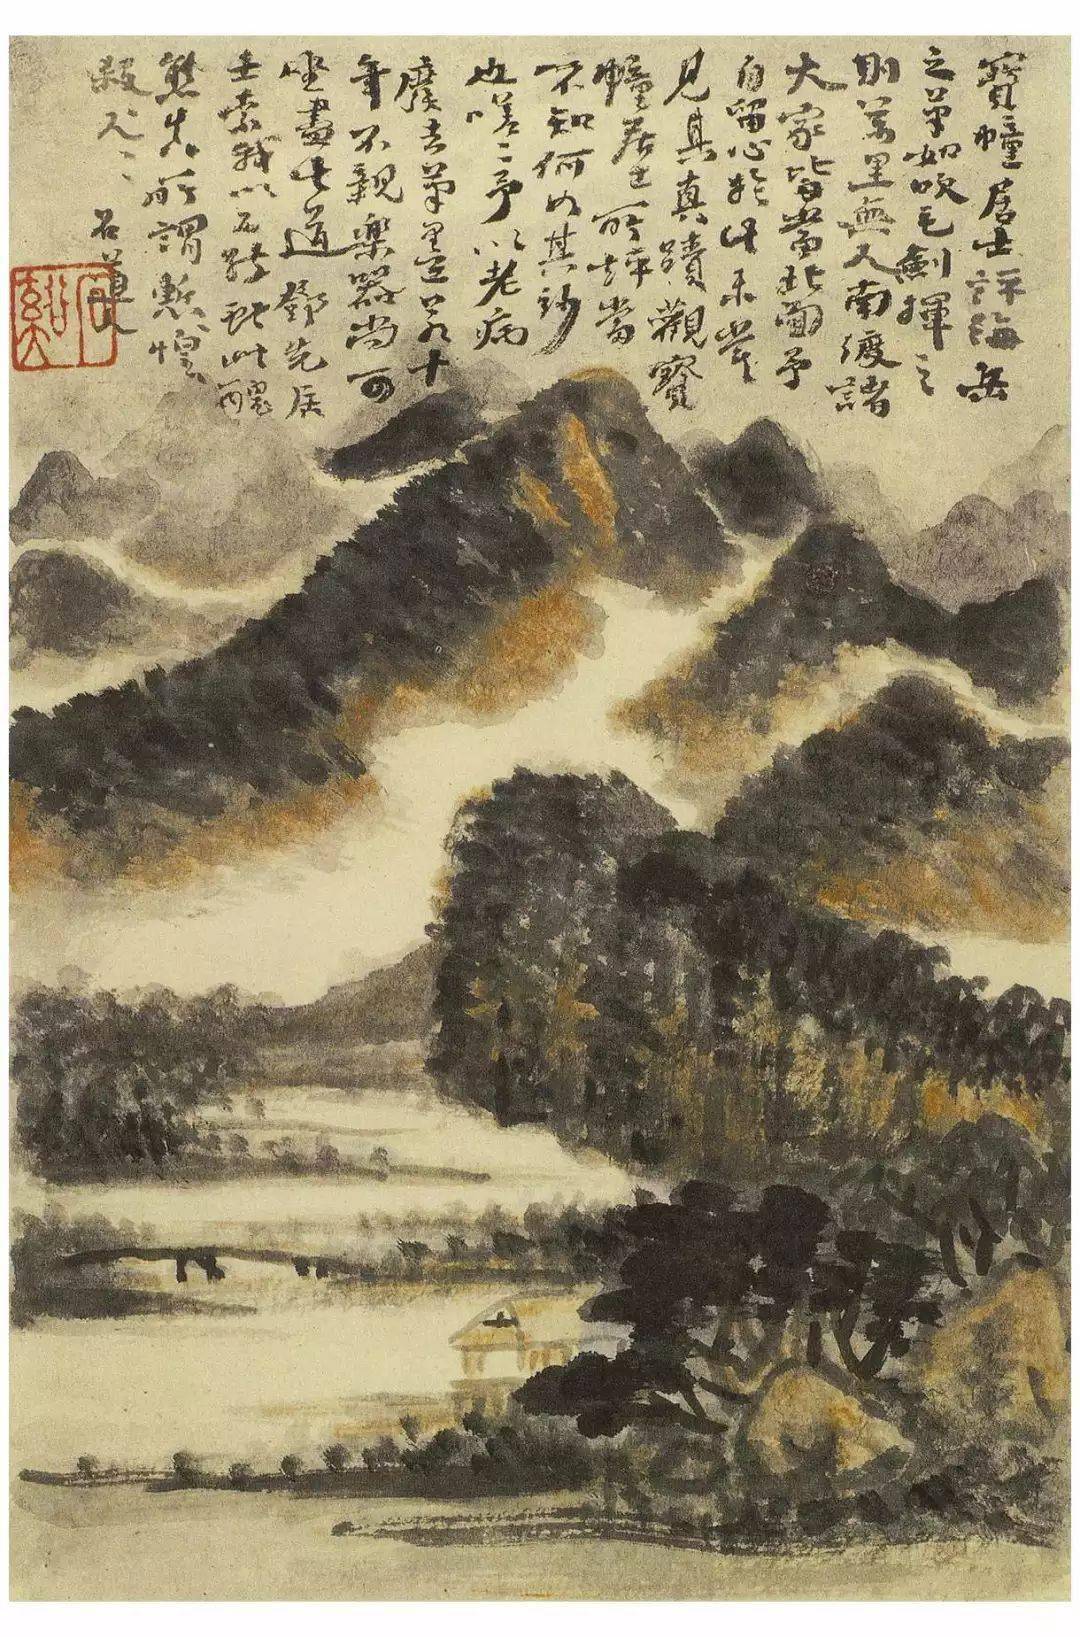 寶幢居士評海岳
之筆如吹毛劍揮之
則萬里無人南渡諸
大家皆當北面予
自留心於此未嘗
見其真蹟觀寶
幢居士所評當
不知何如其妙
也嗟〻予以老病
廢去筆墨
年不親樂器尚可
道鄧先
索我以此醜
態所謂慚惶
殺人〻 石道人